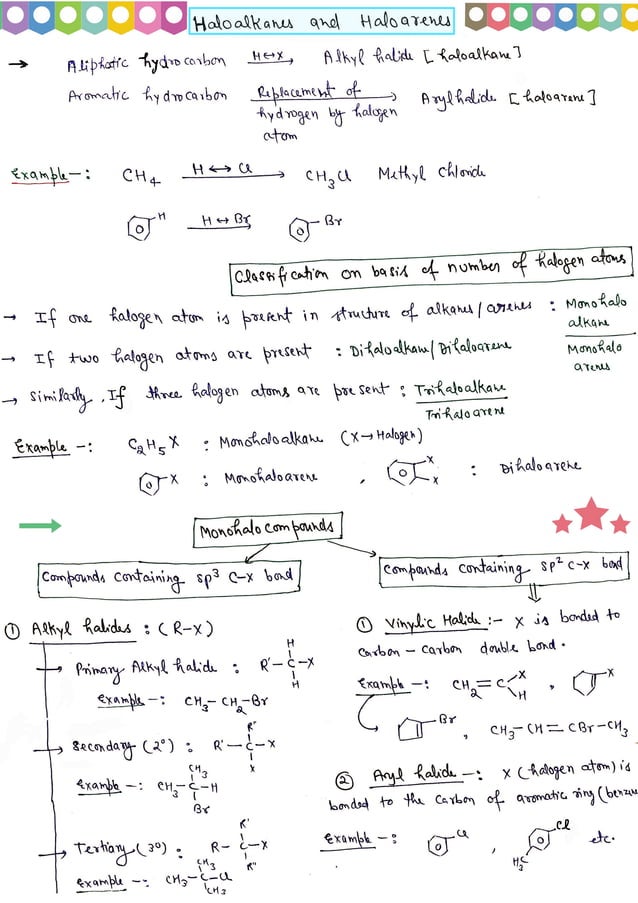 Haloalkanes and Haloarenes
→ Aliphatic hydrocarbon H↔X → Alkyl halide [haloalkane]
Aromatic hydrocarbon Replacement of hydrogen by halogen atom → Aryl halide [haloarene]
Example -: CH4 H↔Cl → CH3Cl Methyl Chloride
H H↔Br → Br
Classification on basis of number of halogen atoms
→ If one halogen atom is present in structure of alkanes/arenes : Monohalo alkane
Monohalo arenes
→ If two halogen atoms are present : Dihaloalkane/Dihaloarene
→ Similarly, If three halogen atoms are present : Trihaloalkane
Trihaloarene
Example -: C2H5X : Monohaloalkane (X→Halogen)
X : Monohaloarene , X X : Dihaloarene
Monohalo compounds
Compounds containing sp3 C-X bond
Compounds containing sp2 C-X bond
① Alkyl halides : (R-X)
→ Primary Alkyl halide : R'-C-X
H
H
Example -: CH3-CH2-Br
→ Secondary (2°) : R'-C-X
R'
X
Example -: CH3-C-H
CH3
Br
→ Tertiary (3°) : R-C-X
R'
R"
Example -: CH3-C-Cl
CH3
CH3
① Vinylic Halide :- X is bonded to
Carbon - Carbon double bond.
Example -: CH2=C X H , X
Br , CH3-CH=CBr-CH3
② Aryl halide -: X (halogen atom) is
bonded to the carbon of aromatic ring
Example -: Cl , Cl H3C etc.